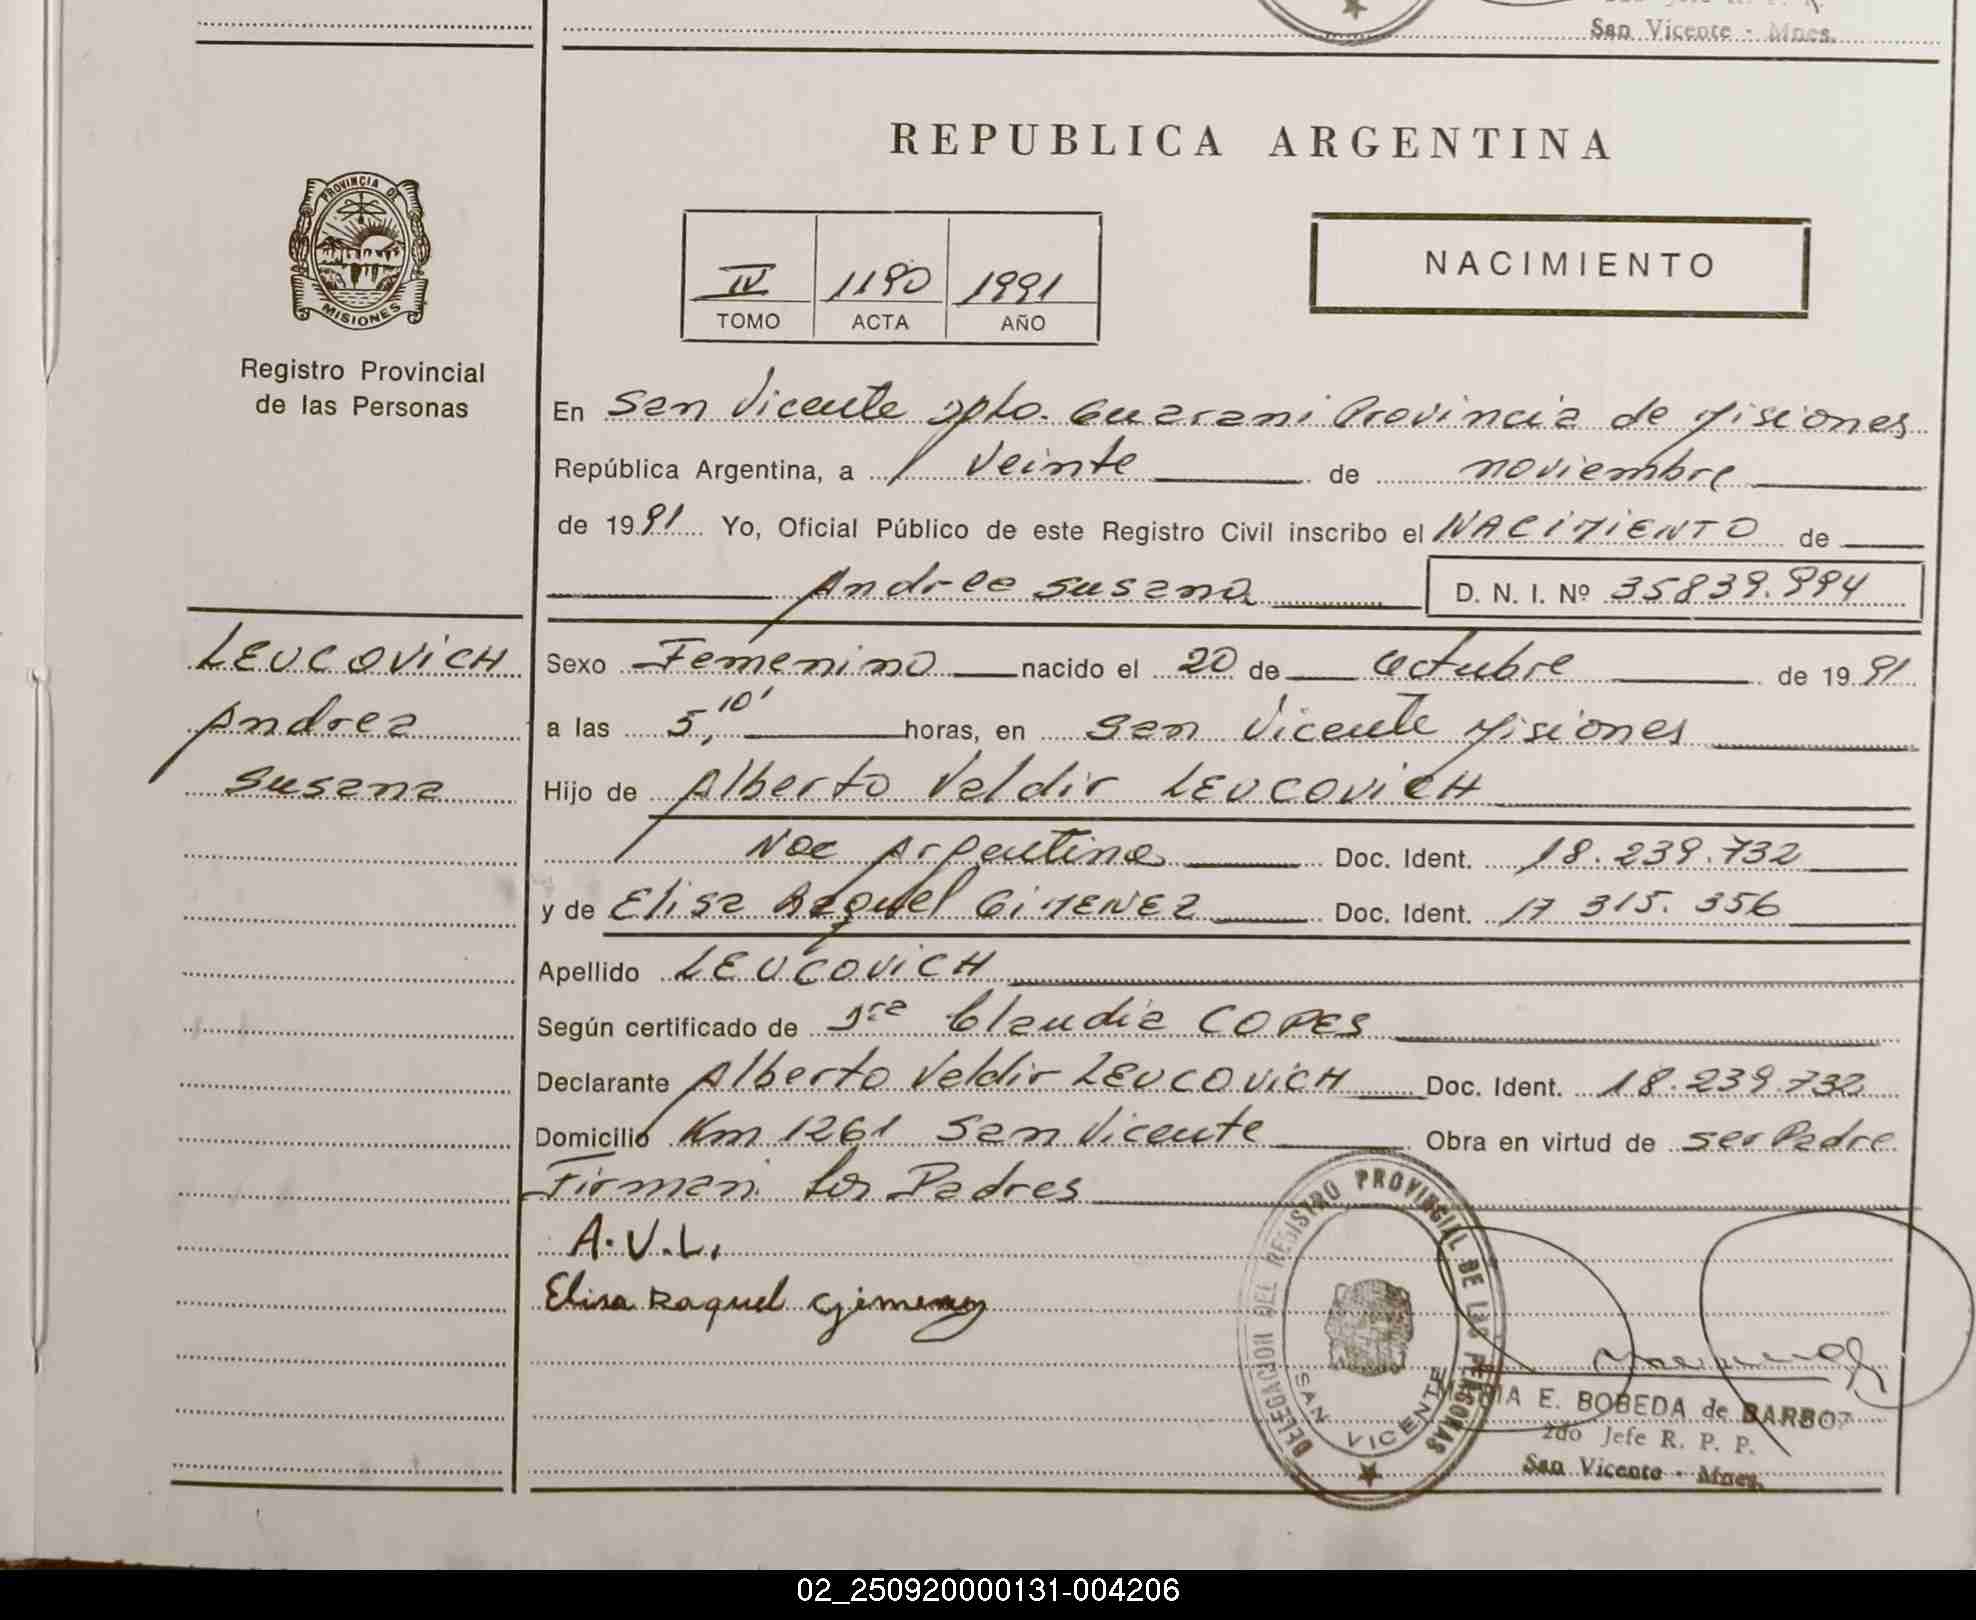 San Vicente - Mnes.
REPUBLICA ARGENTINA
PROVINCIA DE
MISIONES
Registro Provincial
de las Personas
IV 1190 1991
TOMO ACTA AÑO
NACIMIENTO
En San Vicente Dpto. Guarani Provincia de Misiones
República Argentina, a veinte de noviembre
de 1991 Yo, Oficial Público de este Registro Civil inscribo el NACIMIENTO de
Andrea Susana D. N. I. Nº 35839.994
LEUCOVICH
Andrea
Susana
Sexo Femenino nacido el 20 de octubre de 1991
a las 5,10' horas, en San Vicente Misiones
Hijo de Alberto Valdir LEUCOVICH
Nac Argentina Doc. Ident. 18.239.732
y de Elisa Raquel GIMENEZ Doc. Ident. 17 315.356
Apellido LEUCOVICH
Según certificado de Dra Claudia COPES
Declarante Alberto Valdir LEUCOVICH Doc. Ident. 18.239.732
Domicilio Km 1261 San Vicente Obra en virtud de ser Padre
Firman los Padres
A.V.L.
Elisa Raquel Gimenez
DELEGACION DEL REGISTRO PROVINCIAL DE LAS PERSONAS
SAN VICENTE
MARIA E. BOBEDA de BARBOZ
2do Jefe R. P. P.
San Vicente - Mnes.
02_250920000131-004206